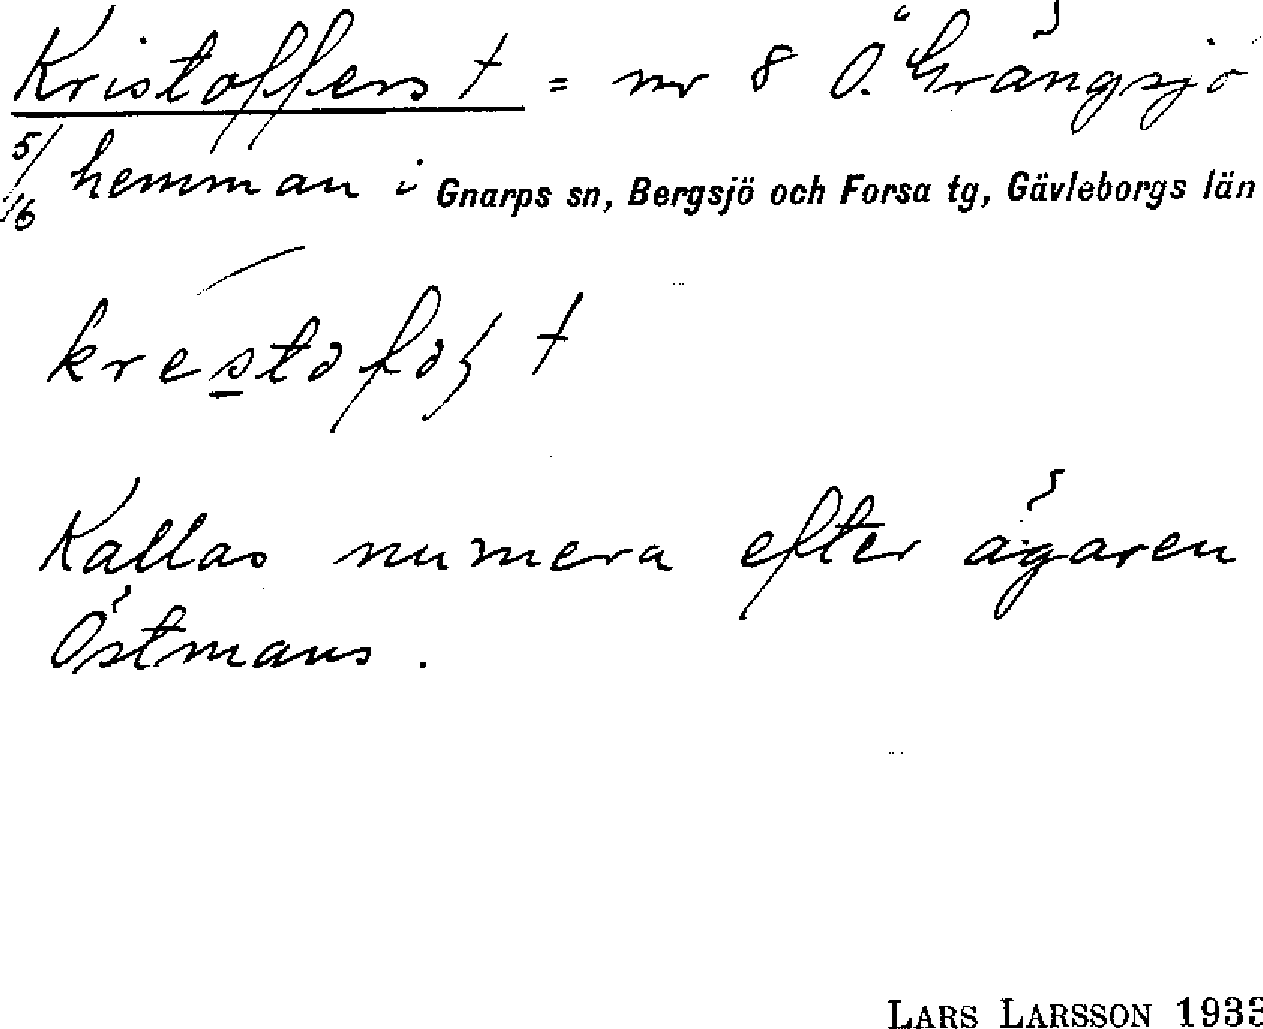 Kristoffers † = nr 8 Ö. Grängsjö
5/16 hemman i Gnarps sn, Bergsjö och Forsa tg, Gävleborgs län
†
Kallas numera efter ägaren
Östmans.
LARS LARSSON 1933